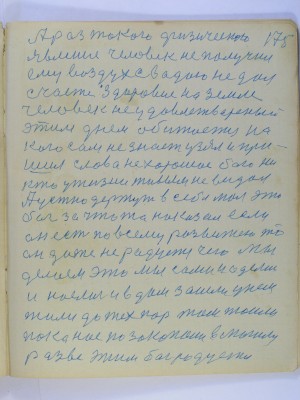 А раз такого физического 175
явление человек не получил
ему воздух с вадою не дал
счастье здоровие на земле
человек неудовлетвореный
этим днем обижает на
кого сам не знает узял и при
шил слова не хорошое бога ни
кто у жизни такем не видал
А устно держут в себя мол это
бог за что то наказал если
он ест по всему розвитию то
он даже не радует чего мы
делаем это мы сами надели
и наели и в дом зашли у нем
жили до тех пор там жили
пока нас не закопали в могилу
разве этим бог радуется